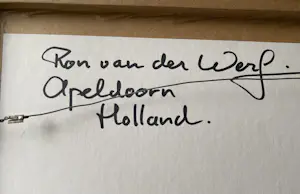 Ron van der Werf.
Apeldoorn
Holland.